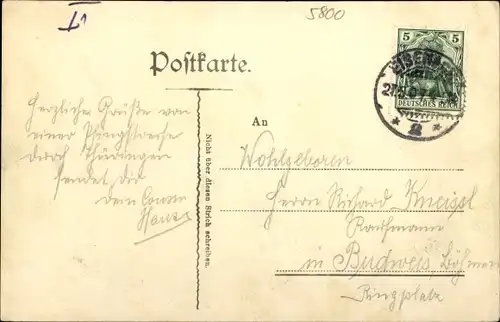 5800
Postkarte.
5 5
DEUTSCHES REICH
2
An
Nicht über diesen Strich schreiben.
Herzliche Grüße von
einer Pfingstreise
durch Thüringen
sendet Dir
dein Cousin
Hans
Wohlgeboren
Herrn Richard Kneissl
Kaufmann
in Budweis Böhmen
Ringplatz